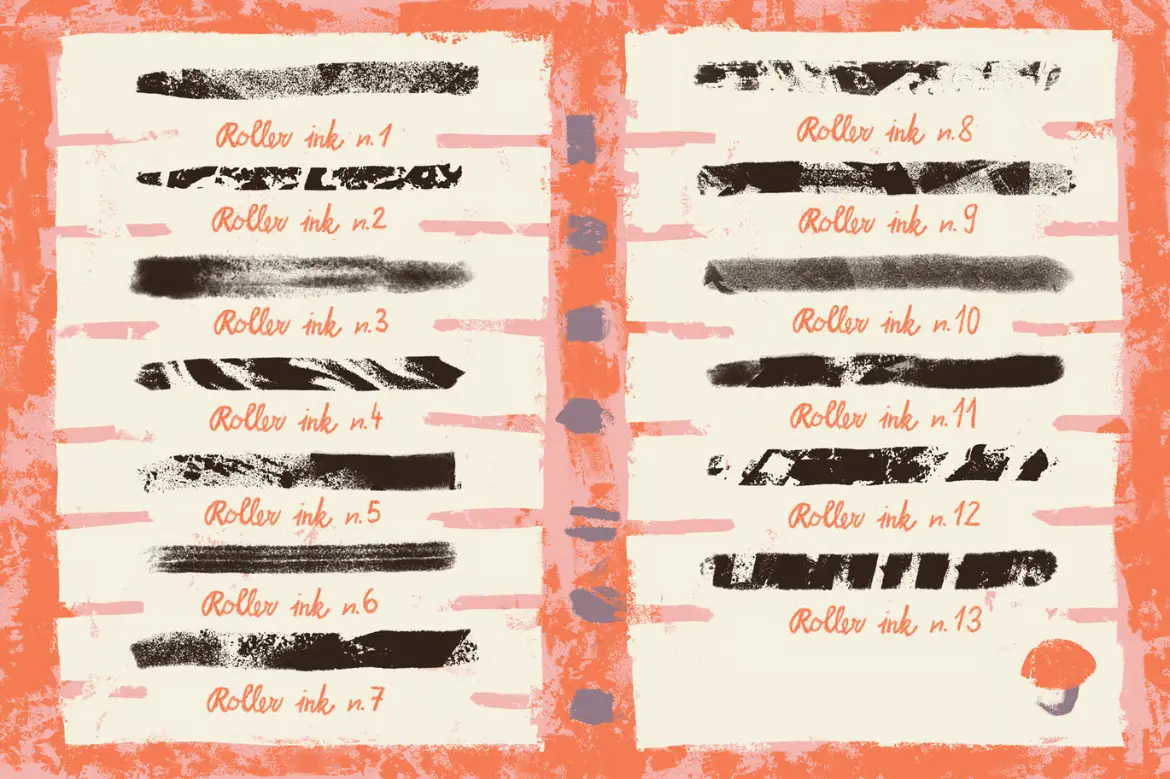 Roller ink n.1
Roller ink n.2
Roller ink n.3
Roller ink n.4
Roller ink n.5
Roller ink n.6
Roller ink n.7
Roller ink n.8
Roller ink n.9
Roller ink n.10
Roller ink n.11
Roller ink n.12
Roller ink n.13